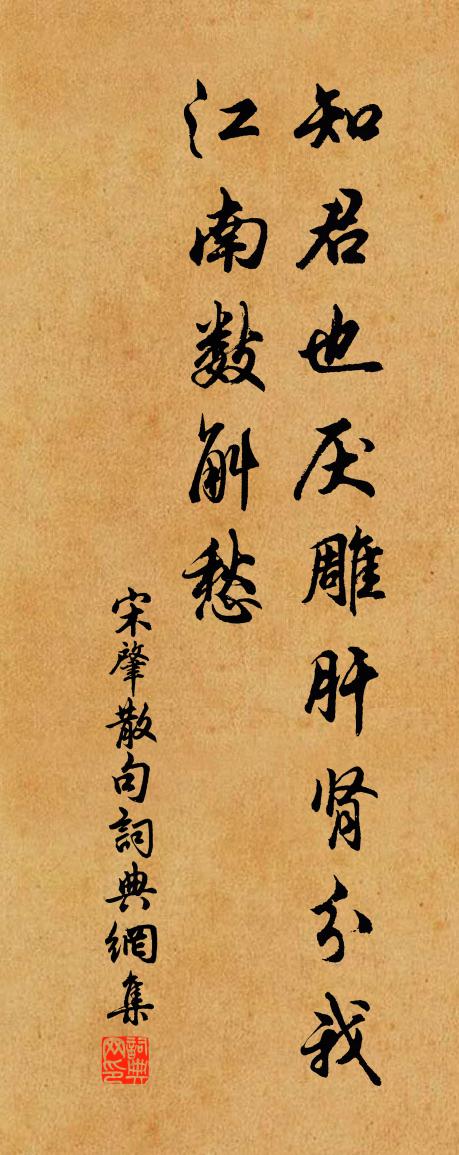 知君也厌雕肝肾分我
江南数斛愁
宋肇散句詞典網集
詞典網印